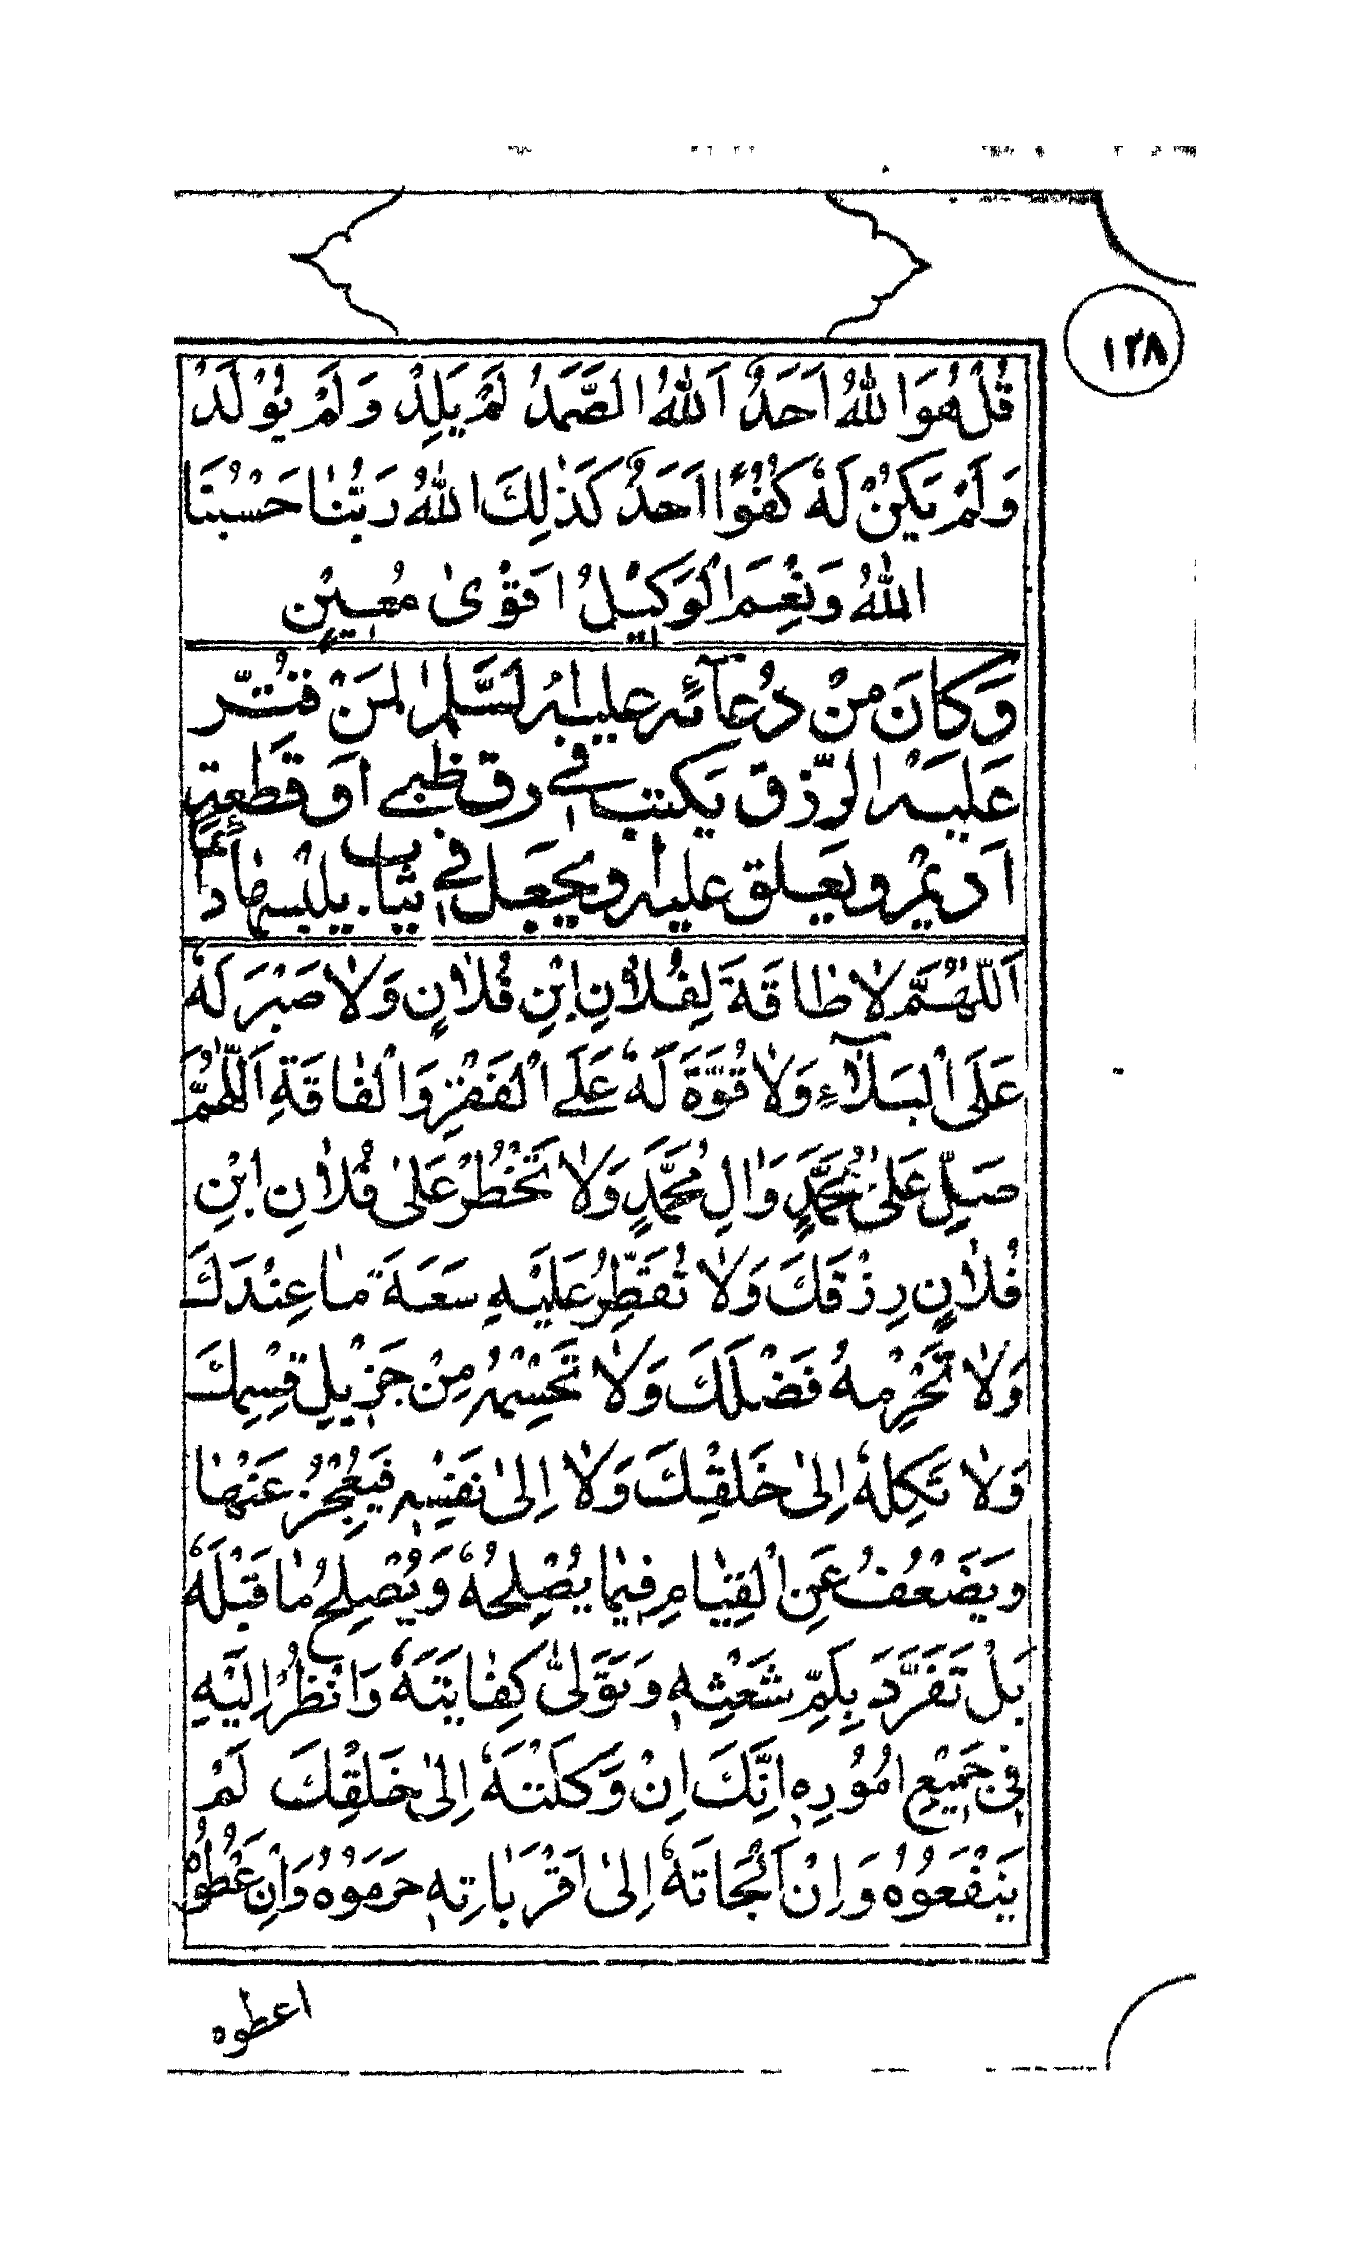 ١٣٨
قُلْ هُوَ اللهُ اَحَدٌ اَللهُ الصَّمَدُ لَمْ يَلِدْ وَلَمْ يُوْلَدْ
وَلَمْ يَكُنْ لَهٗ كُفُوًا اَحَدٌ كَذٰلِكَ اللهُ رَبُّنٰا حَسْبُنَا
اللهُ وَنِعْمَ الْوَكِيْلُ اَقْوٰى مُعِيْنٍ
وَكانَ مِنْ دُعآئِه عليهِ السَّلٰم لمَنْ قُتِّر
عَليهْ الرِّزق يَكتب في رق ظبي اَو قَطعةٍ
اَديْم ويَعلق عليه ويجعَل في ثياب يلبْسهٰا دائماً
اَللّٰهُمَّ لاٰ طٰاقَةَ لِفُلاٰنِ ابْنِ فُلاٰنٍ وَلاٰ صَبْرَ لَهٗ
عَلَى الْبَلاٰۤءِ وَلاٰ قُوَّةَ لَهٗ عَلَى الْفَقْرِ وَالْفٰاقَةِ اَللّٰهُمَّ
صَلِّ عَلىٰ مُحَمَّدٍ وَاٰلِ مُحَمَّدٍ وَلاٰ تَحْظُرْ عَلىٰ فُلاٰنِ ابْنِ
فُلاٰنٍ رِزْقَكَ وَلاٰ تُقَتِّرْ عَلَيْهِ سَعَةَ مٰا عِنْدَكَ
وَلاٰ تَحْرِمْهُ فَضْلَكَ وَلاٰ تَحْسِمْهُ مِنْ جَزْيلِ قِسْمِكَ
وَلاٰ تَكِلْهٗ اِلىٰ خَلْقِكَ وَلاٰ اِلىٰ نَفْسِهٖ فَيَعْجِزُ عَنْهٰا
وَيَضْعُفُ عَنِ الْقِيٰامِ فِيمٰا يُصْلِحُهٗ وَيُصْلِحُ مٰا قَبْلَهٗ
بَلْ تَفَرَّدَ بِلَمِّ شَعْثِهٖ وَتَوَلّىٰ كِفٰايَتَهٗ وَانْظُرْ اِلَيْهِ
فِي جَمِيْعِ اُمُوُرِهٖ اِنَّكَ اِنْ وَكَلْتَهٗ اِلىٰ خَلْقِكَ لَمْ
يَنْفَعُوُهُ وَاِنْ اَلْجَاتَهٗ اِلىٰ اَقْرَبٰائِهٖ حَرَمَوُهُ وَاِنْ اَعْطَوْ
اعطوه